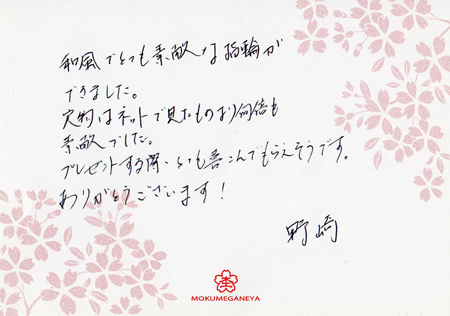 和風でとても素敵な指輪が
できました。
実物はネットで見たものより何倍も
素敵でした。
プレゼントする際、とても喜こんでもらえそうです。
ありがとうございます！
野崎
MOKUMEGANEYA